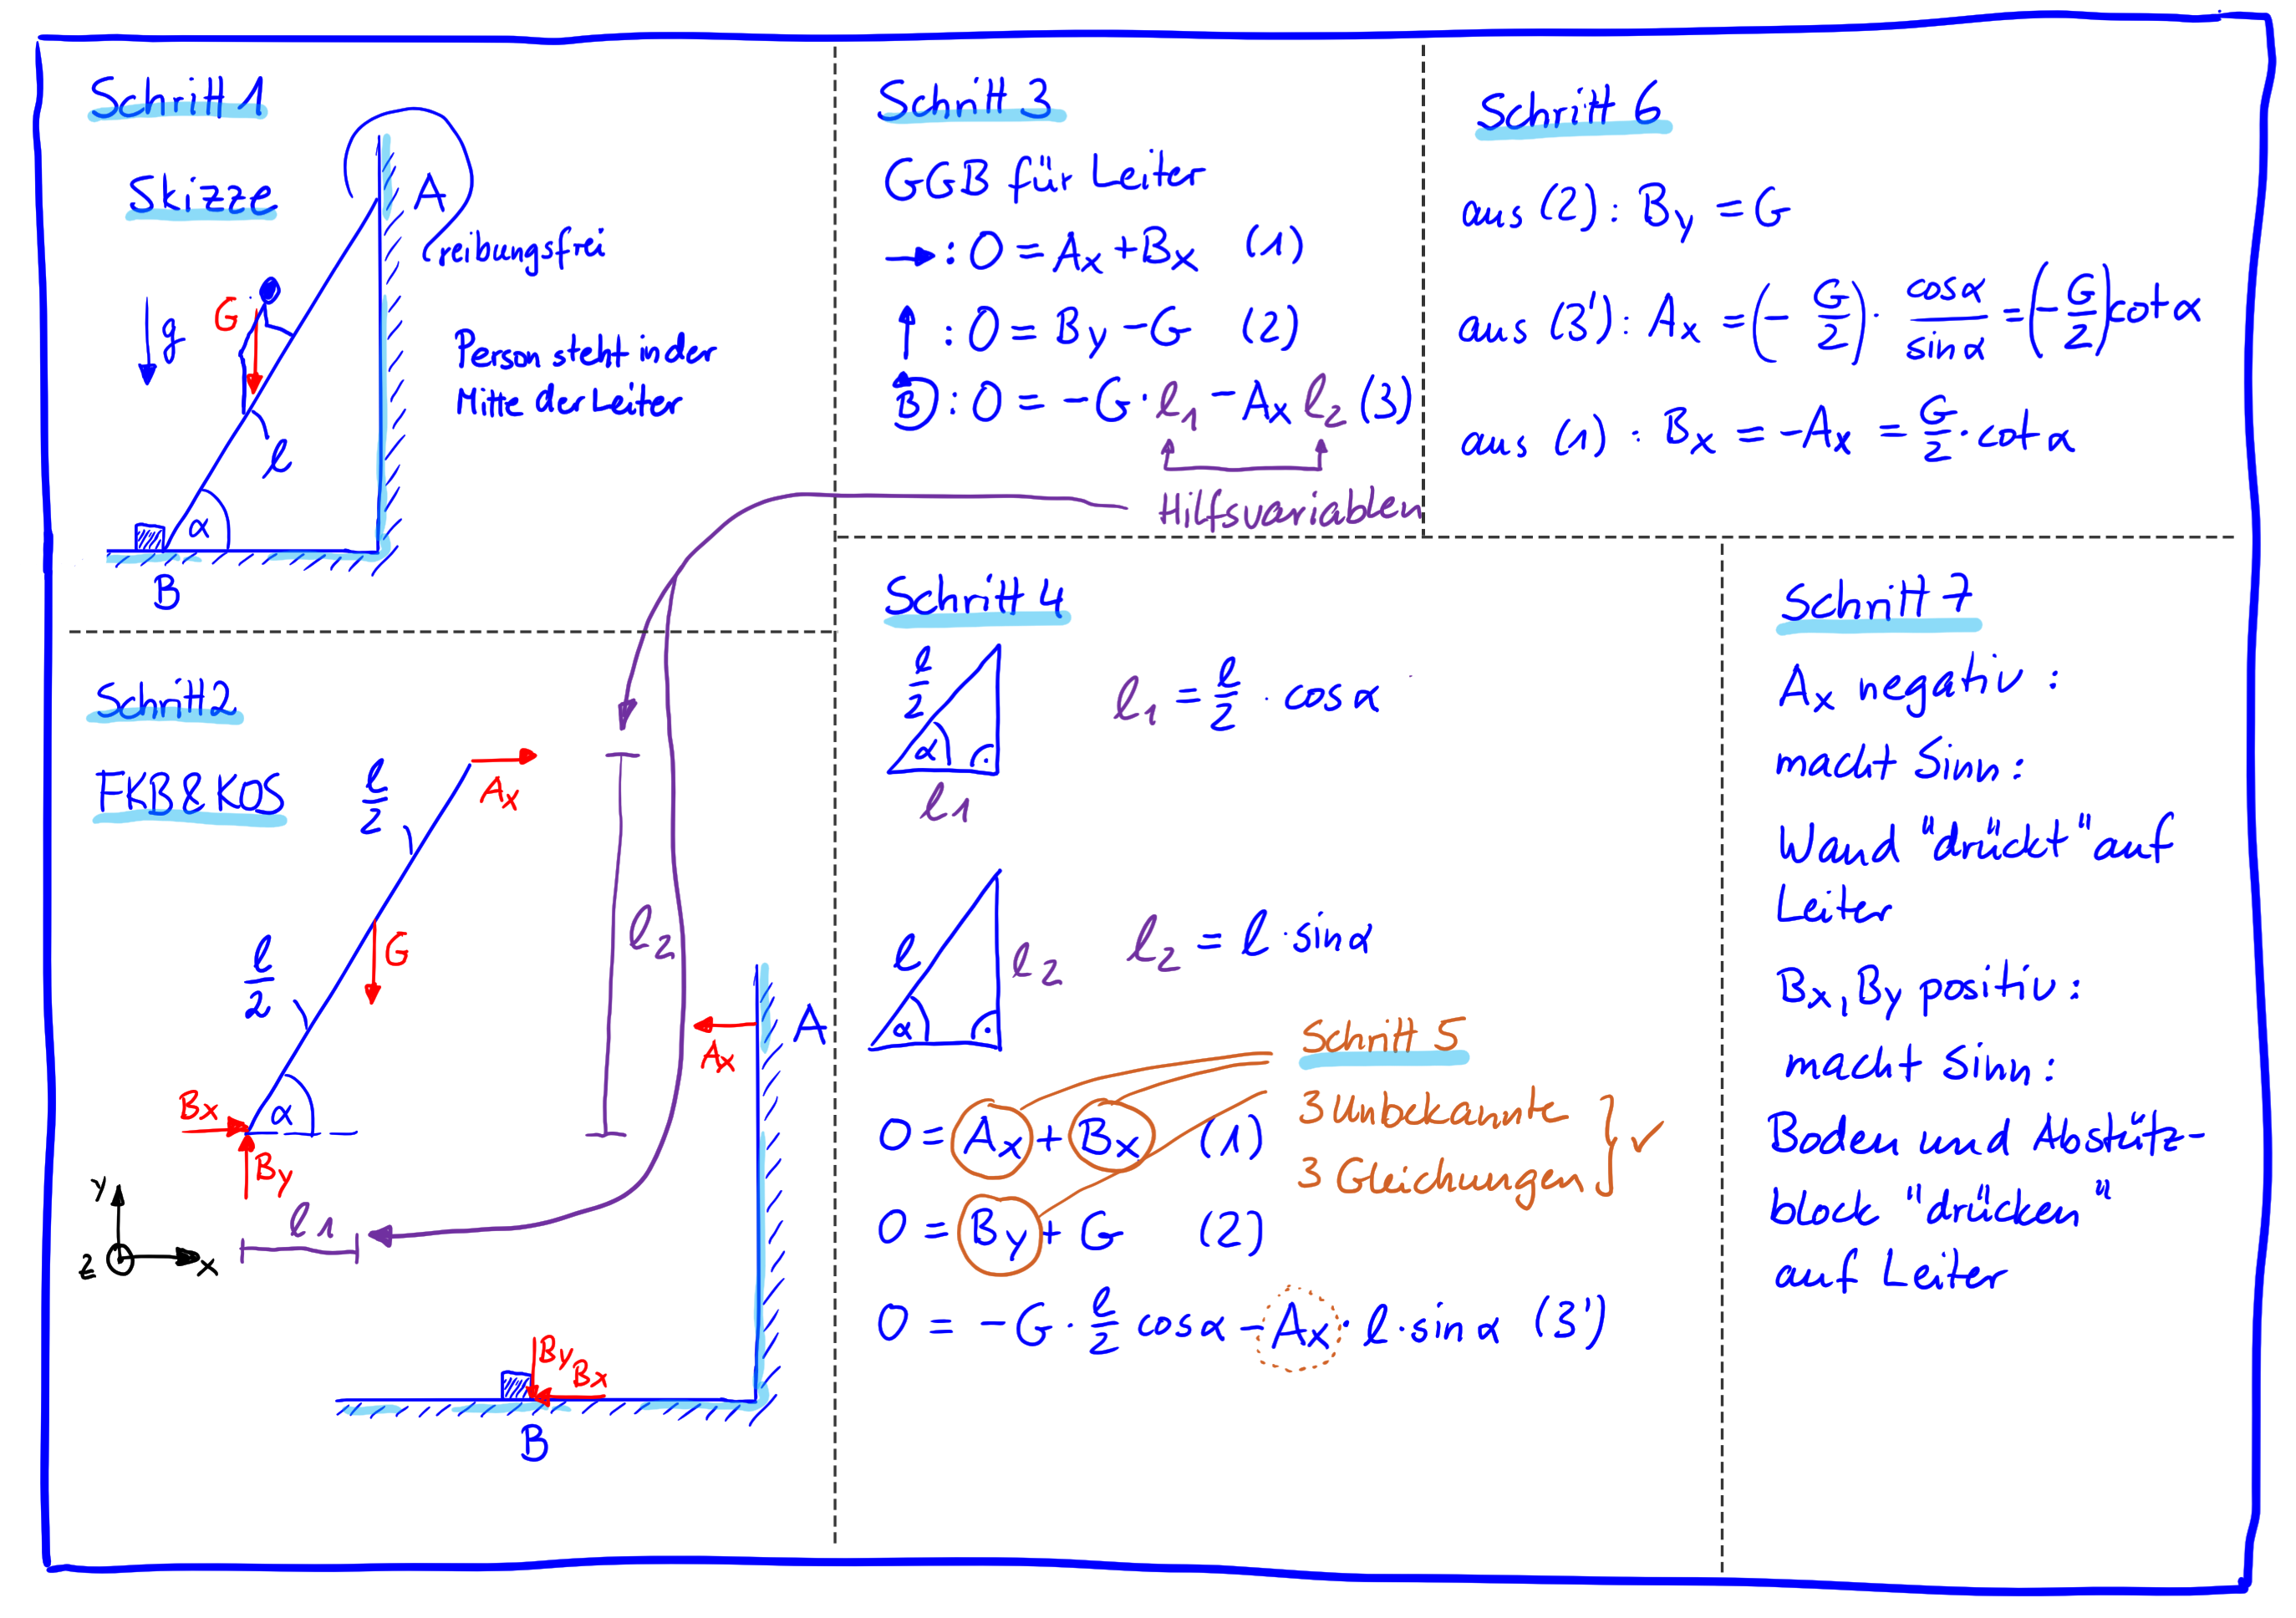 Schritt 1
Skizze
A
reibungsfrei
G
g
Person steht in der
Mitte der Leiter
l
α
B
Schritt 2
FKB & KOS
l/2
Ax
G
l/2
l2
A
Ax
Bx
α
By
y
z
x
l1
By
Bx
B
Schritt 3
GGB für Leiter
→ : 0 = Ax + Bx (1)
↑ : 0 = By - G (2)
B) : 0 = -G · l1 - Ax l2 (3)
Hilfsvariablen
Schritt 4
l/2
α
l1
l1 = l/2 · cos α
l
α
l2
l2 = l · sin α
Schritt 5
3 Unbekannte
3 Gleichungen } ✓
0 = Ax + Bx (1)
0 = By + G (2)
0 = - G · l/2 cos α - Ax · l · sin α (3')
Schritt 6
aus (2) : By = G
aus (3') : Ax = (- G/2) · cos α / sin α = (- G/2) cot α
aus (1) : Bx = -Ax = G/2 · cot α
Schritt 7
Ax negativ :
macht Sinn :
Wand "drückt" auf
Leiter
Bx, By positiv :
macht Sinn :
Boden und Abstütz-
block "drücken"
auf Leiter